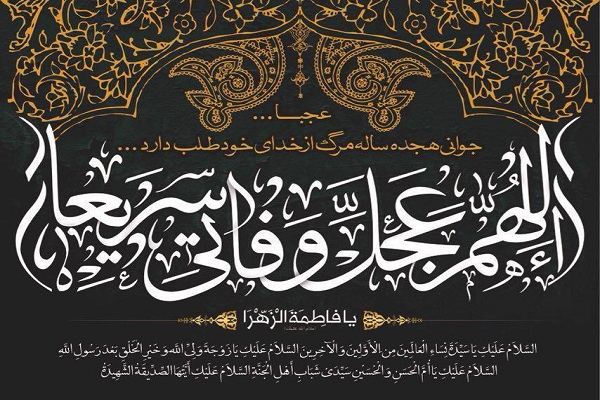 عجبا...
جوانی هجده ساله مرگ از خدای خود طلب دارد ...
اللهُمَّ عَجِّلْ وَفاتی سَریعا
یا فاطِمَةَ الزَهْرَا
سلام الله علیها
السَّلَامُ عَلَيْكِ يَا سَيِّدَةَ نِسَاءِ الْعَالَمِينَ مِنَ الْأَوَّلِينَ وَ الْآخِرِينَ السَّلَامُ عَلَيْكِ يَا زَوْجَةَ وَلِيِّ اللَّهِ وَ خَيْرِ الْخَلْقِ بَعْدَ رَسُولِ اللَّهِ
السَّلَامُ عَلَيْكِ يَا أُمَّ الْحَسَنِ وَ الْحُسَيْنِ سَيِّدَيْ شَبَابِ أَهْلِ الْجَنَّةِ السَّلَامُ عَلَيْكِ أَيَّتُهَا الصِّدِّيقَةُ الشَّهِيدَةُ